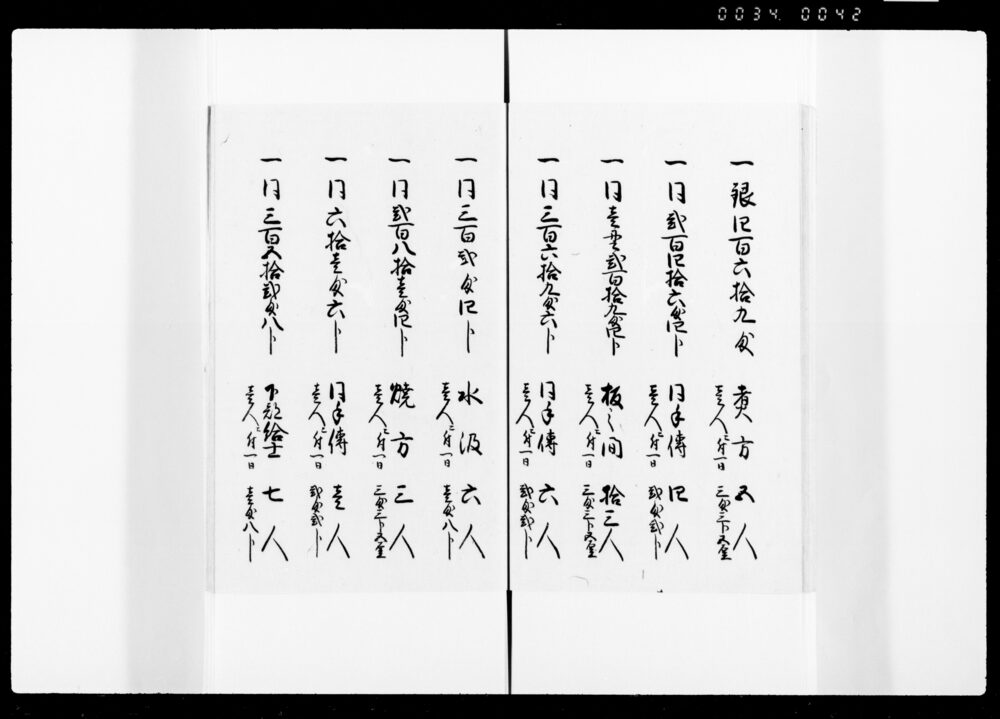 0034. 0042
一 銀四百六拾九匁 煮方 五人
壱人ニ付一日 三匁三分五厘
一 同弐百四拾六匁四分 同手傳 四人
壱人ニ付一日 弐匁弐分
一 同壱貫弐百拾九匁四分 板之間 拾三人
壱人ニ付一日 三匁三分五厘
一 同三百六拾九匁六分 同手傳 六人
壱人ニ付一日 弐匁弐分
一 同三百弐匁四分 水汲 六人
壱人ニ付一日 壱匁八分
一 同弐百八拾壱匁四分 焼方 三人
壱人ニ付一日 三匁三分五厘
一 同六拾壱匁六分 同手傳 壱人
壱人ニ付一日 弐匁弐分
一 同三百五拾弐匁八分 下部給士 七人
壱人ニ付一日 壱匁八分